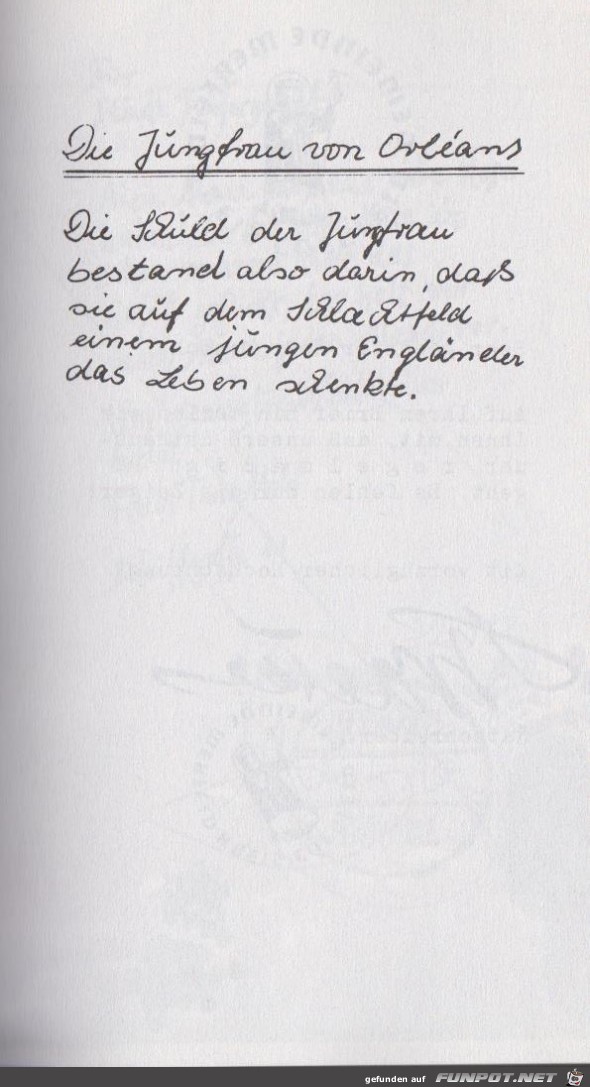 Die Jungfrau von Orléans
Die Schuld der Jungfrau
bestand also darin, daß
sie auf dem Schlachtfeld
einem jungen Engländer
das Leben schenkte.
gefunden auf FUNPOT.NET